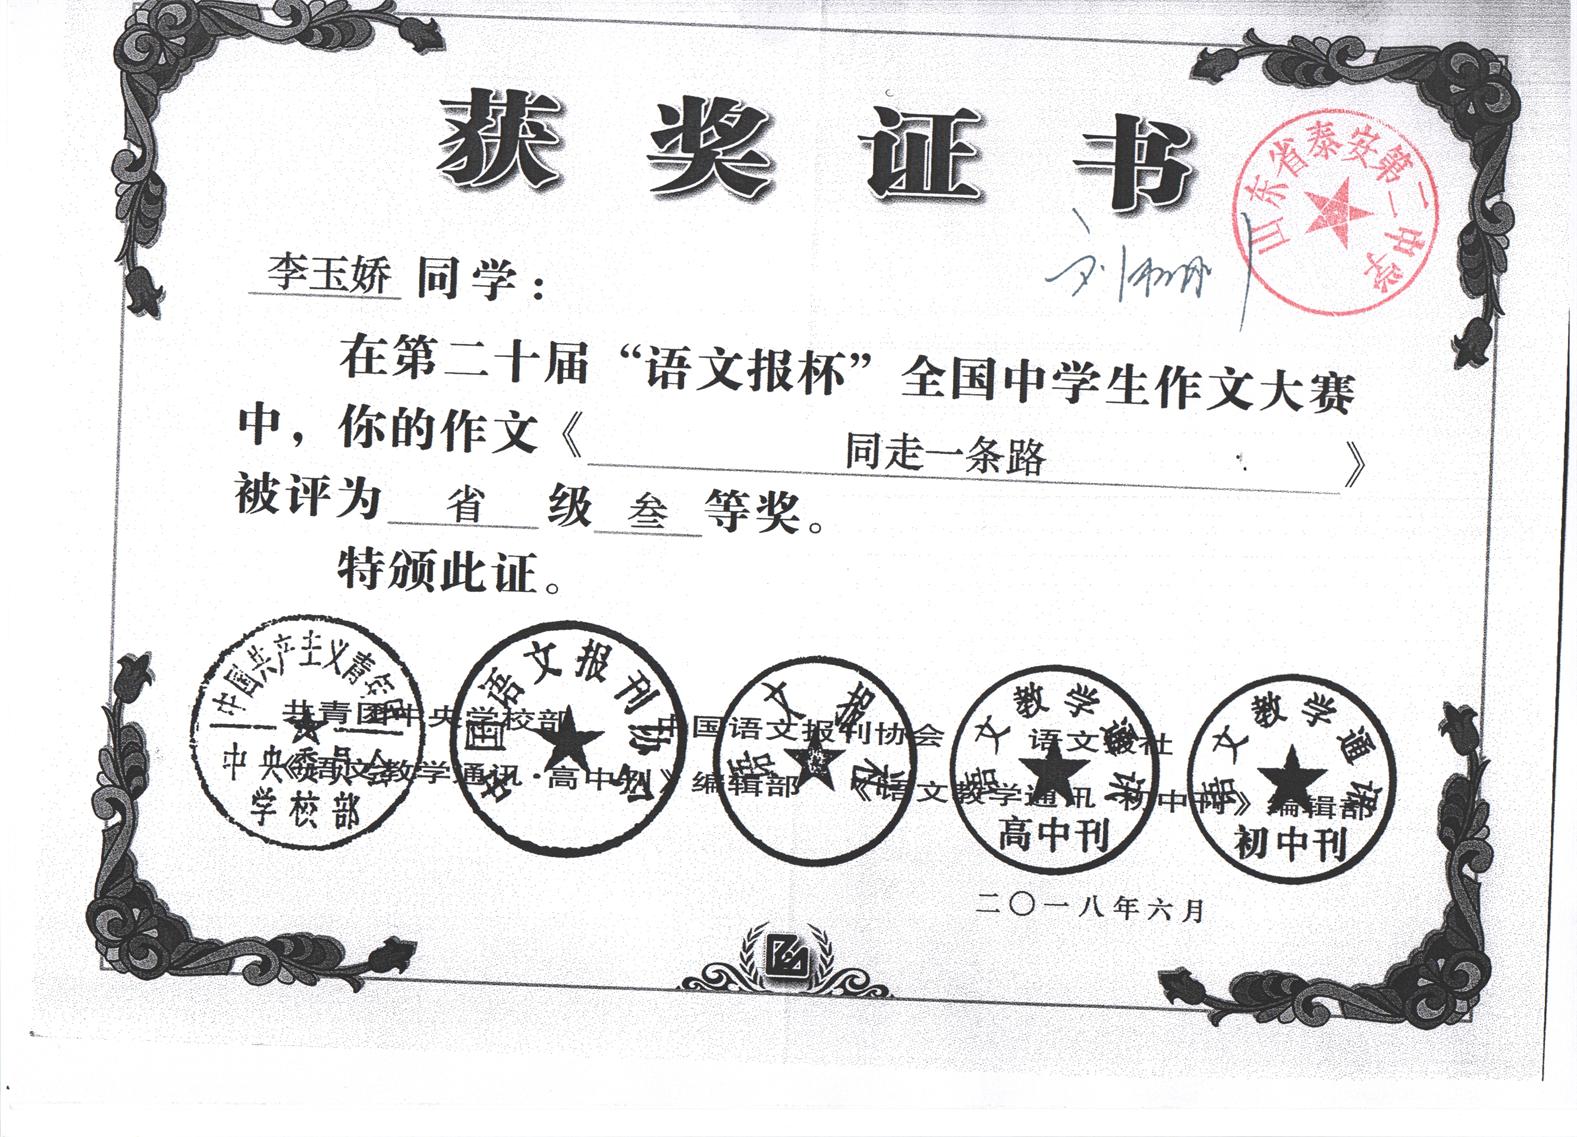 获奖证书
山东省泰安第二中学
李玉娇同学：
在第二十届“语文报杯”全国中学生作文大赛
中，你的作文《同走一条路》
被评为省级叁等奖。
特颁此证。
共青团中央学校部 中国语文报刊协会 语文报社
《语文教学通讯·高中刊》编辑部 《语文教学通讯·初中刊》编辑部
中国共产主义青年团
中央委员会
学校部
中国语文报刊协会
语文报社
语文教学通讯
高中刊
语文教学通讯
初中刊
二〇一八年六月